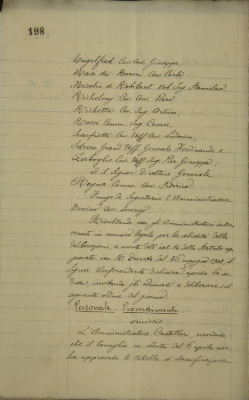 198
Engelfred Cav. Avv. Giuseppe
Mosca dei Baroni Avv. Carlo
Nicolis di Robilant Nob. Ing. Stanislao
Richelmy Cav. Avv. Piero
Richetta Cav. Ing. Arturo
Rossi Comm. Ing. Cesare
Cav. Uff. Avv.
Grand'Uff. Generale Ferdinando e
Zerboglio Cav. Uff. Ing. Pier Giuseppe.
ed il Signor Direttore Generale
Regina Comm. Avv. Federico
Funge da Segretario l'Amministratore
Avv. Lorenzo
Riscontrando che gli Amministratori inter
venuti in numero legale per la validità delle
deliberazioni, a mente dell'art. dello Statuto ap
provato con R. Decreto del 26 maggio 1908, il
Signor Vicepresidente dichiara aperta la se
duta, invitando gli adunati a deliberare sul
seguente ordine del giorno:
Personale - Provvedimenti
omissis
L'Amministratore ricorda
che il Consiglio in seduta del 6 aprile
ha approvato le tabelle di classificazione